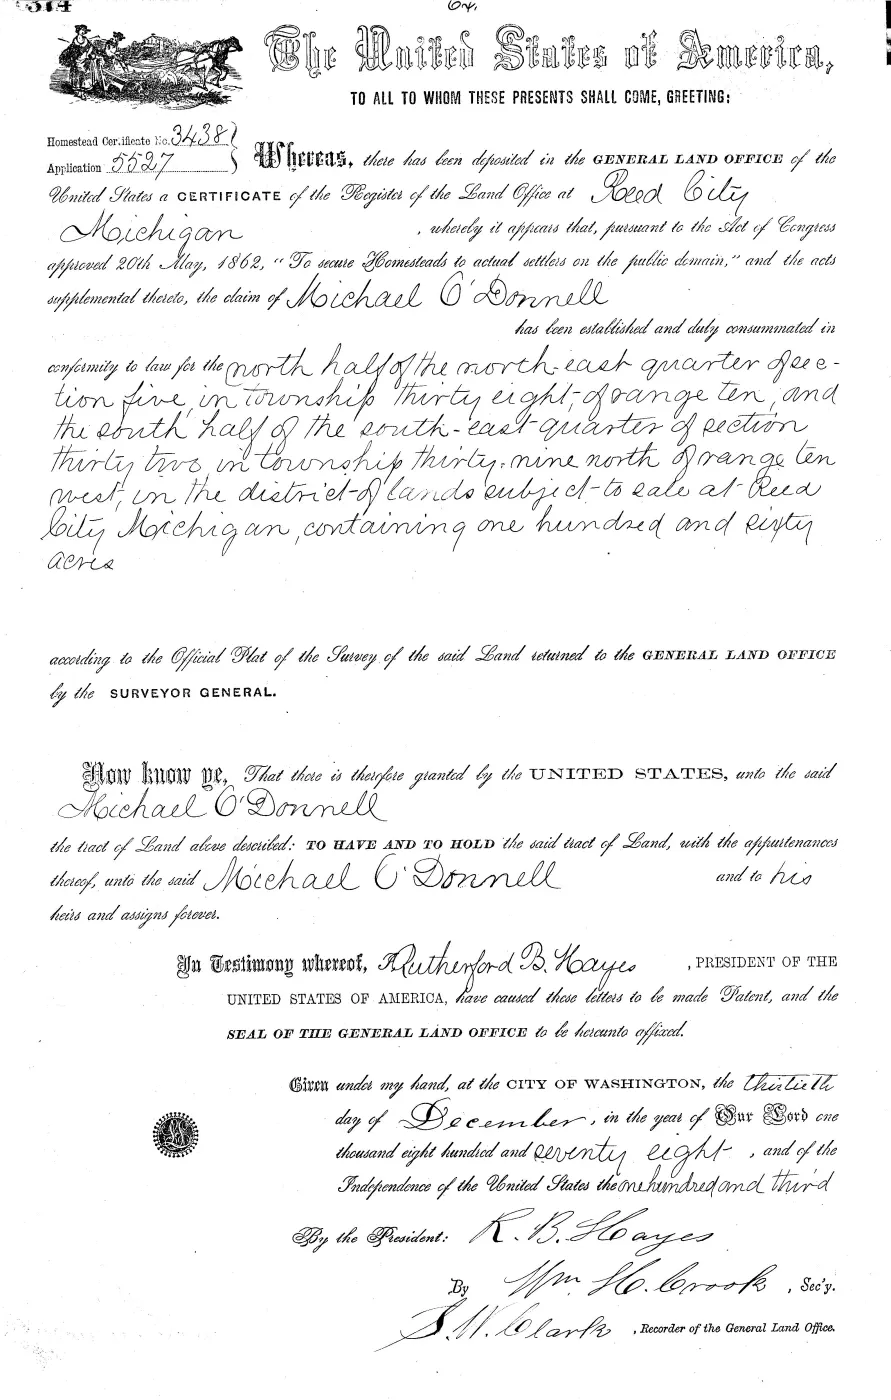 574
64.
The United States of America,
TO ALL TO WHOM THESE PRESENTS SHALL COME, GREETING:
Homestead Certificate No. 3438
Application 5527
Whereas, there has been deposited in the GENERAL LAND OFFICE of the
United States a CERTIFICATE of the Register of the Land Office at Reed City
Michigan , whereby it appears that, pursuant to the Act of Congress
approved 20th May, 1862, "To secure Homesteads to actual settlers on the public domain," and the acts
supplemental thereto, the claim of Michael O'Donnell
has been established and duly consummated in
conformity to law for the north half of the north-east quarter of sec-
tion five, in township thirty eight, of range ten, and
the south half of the south-east quarter of section
thirty two, in township thirty-nine north of range ten
west, in the district of lands subject to sale at Reed
City Michigan, containing one hundred and sixty
acres
according to the Official Plat of the Survey of the said Land returned to the GENERAL LAND OFFICE
by the SURVEYOR GENERAL.
Now know ye, That there is therefore granted by the UNITED STATES, unto the said
Michael O'Donnell
the tract of Land above described: TO HAVE AND TO HOLD the said tract of Land, with the appurtenances
thereof, unto the said Michael O'Donnell and to his
heirs and assigns forever.
In Testimony whereof, I, Rutherford B. Hayes , PRESIDENT OF THE
UNITED STATES OF AMERICA, have caused these letters to be made Patent, and the
SEAL OF THE GENERAL LAND OFFICE to be hereunto affixed.
Given under my hand, at the CITY OF WASHINGTON, the thirtieth
day of December , in the year of Our Lord one
thousand eight hundred and seventy eight , and of the
Independence of the United States the one hundred and third
By the President: R. B. Hayes
By Wm. H. Crook , Sec'y.
S. W. Clark , Recorder of the General Land Office.